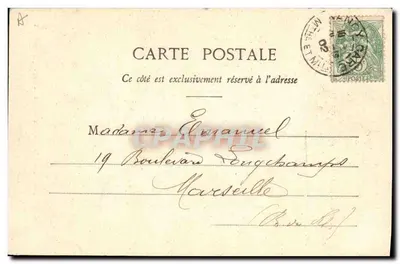 CARTE POSTALE
Ce côté est exclusivement réservé à l'adresse
Madame Emmanuel
19 Boulevard Longchamps
Marseille
(B. du Rh.)